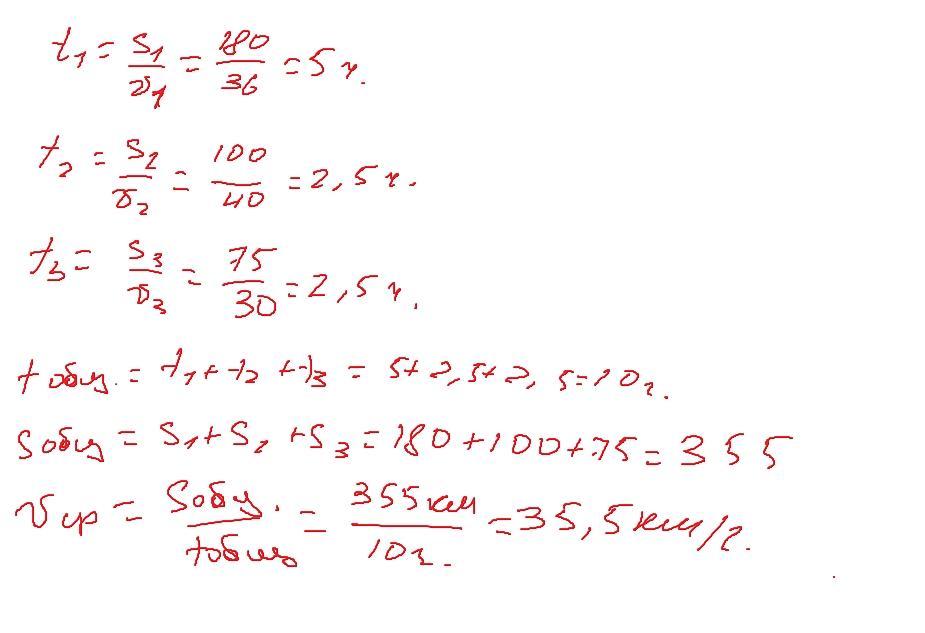 t₁ = S₁/v₁ = 180/36 = 5 ч.
t₂ = S₂/v₂ = 100/40 = 2,5 ч.
t₃ = S₃/v₃ = 75/30 = 2,5 ч.
t общ. = t₁ + t₂ + t₃ = 5+2,5+2,5=10 ч.
S общ = S₁ + S₂ + S₃ = 180+100+75=355
v ср = S общ./t общ = 355 км/10 ч. = 35,5 км/ч.